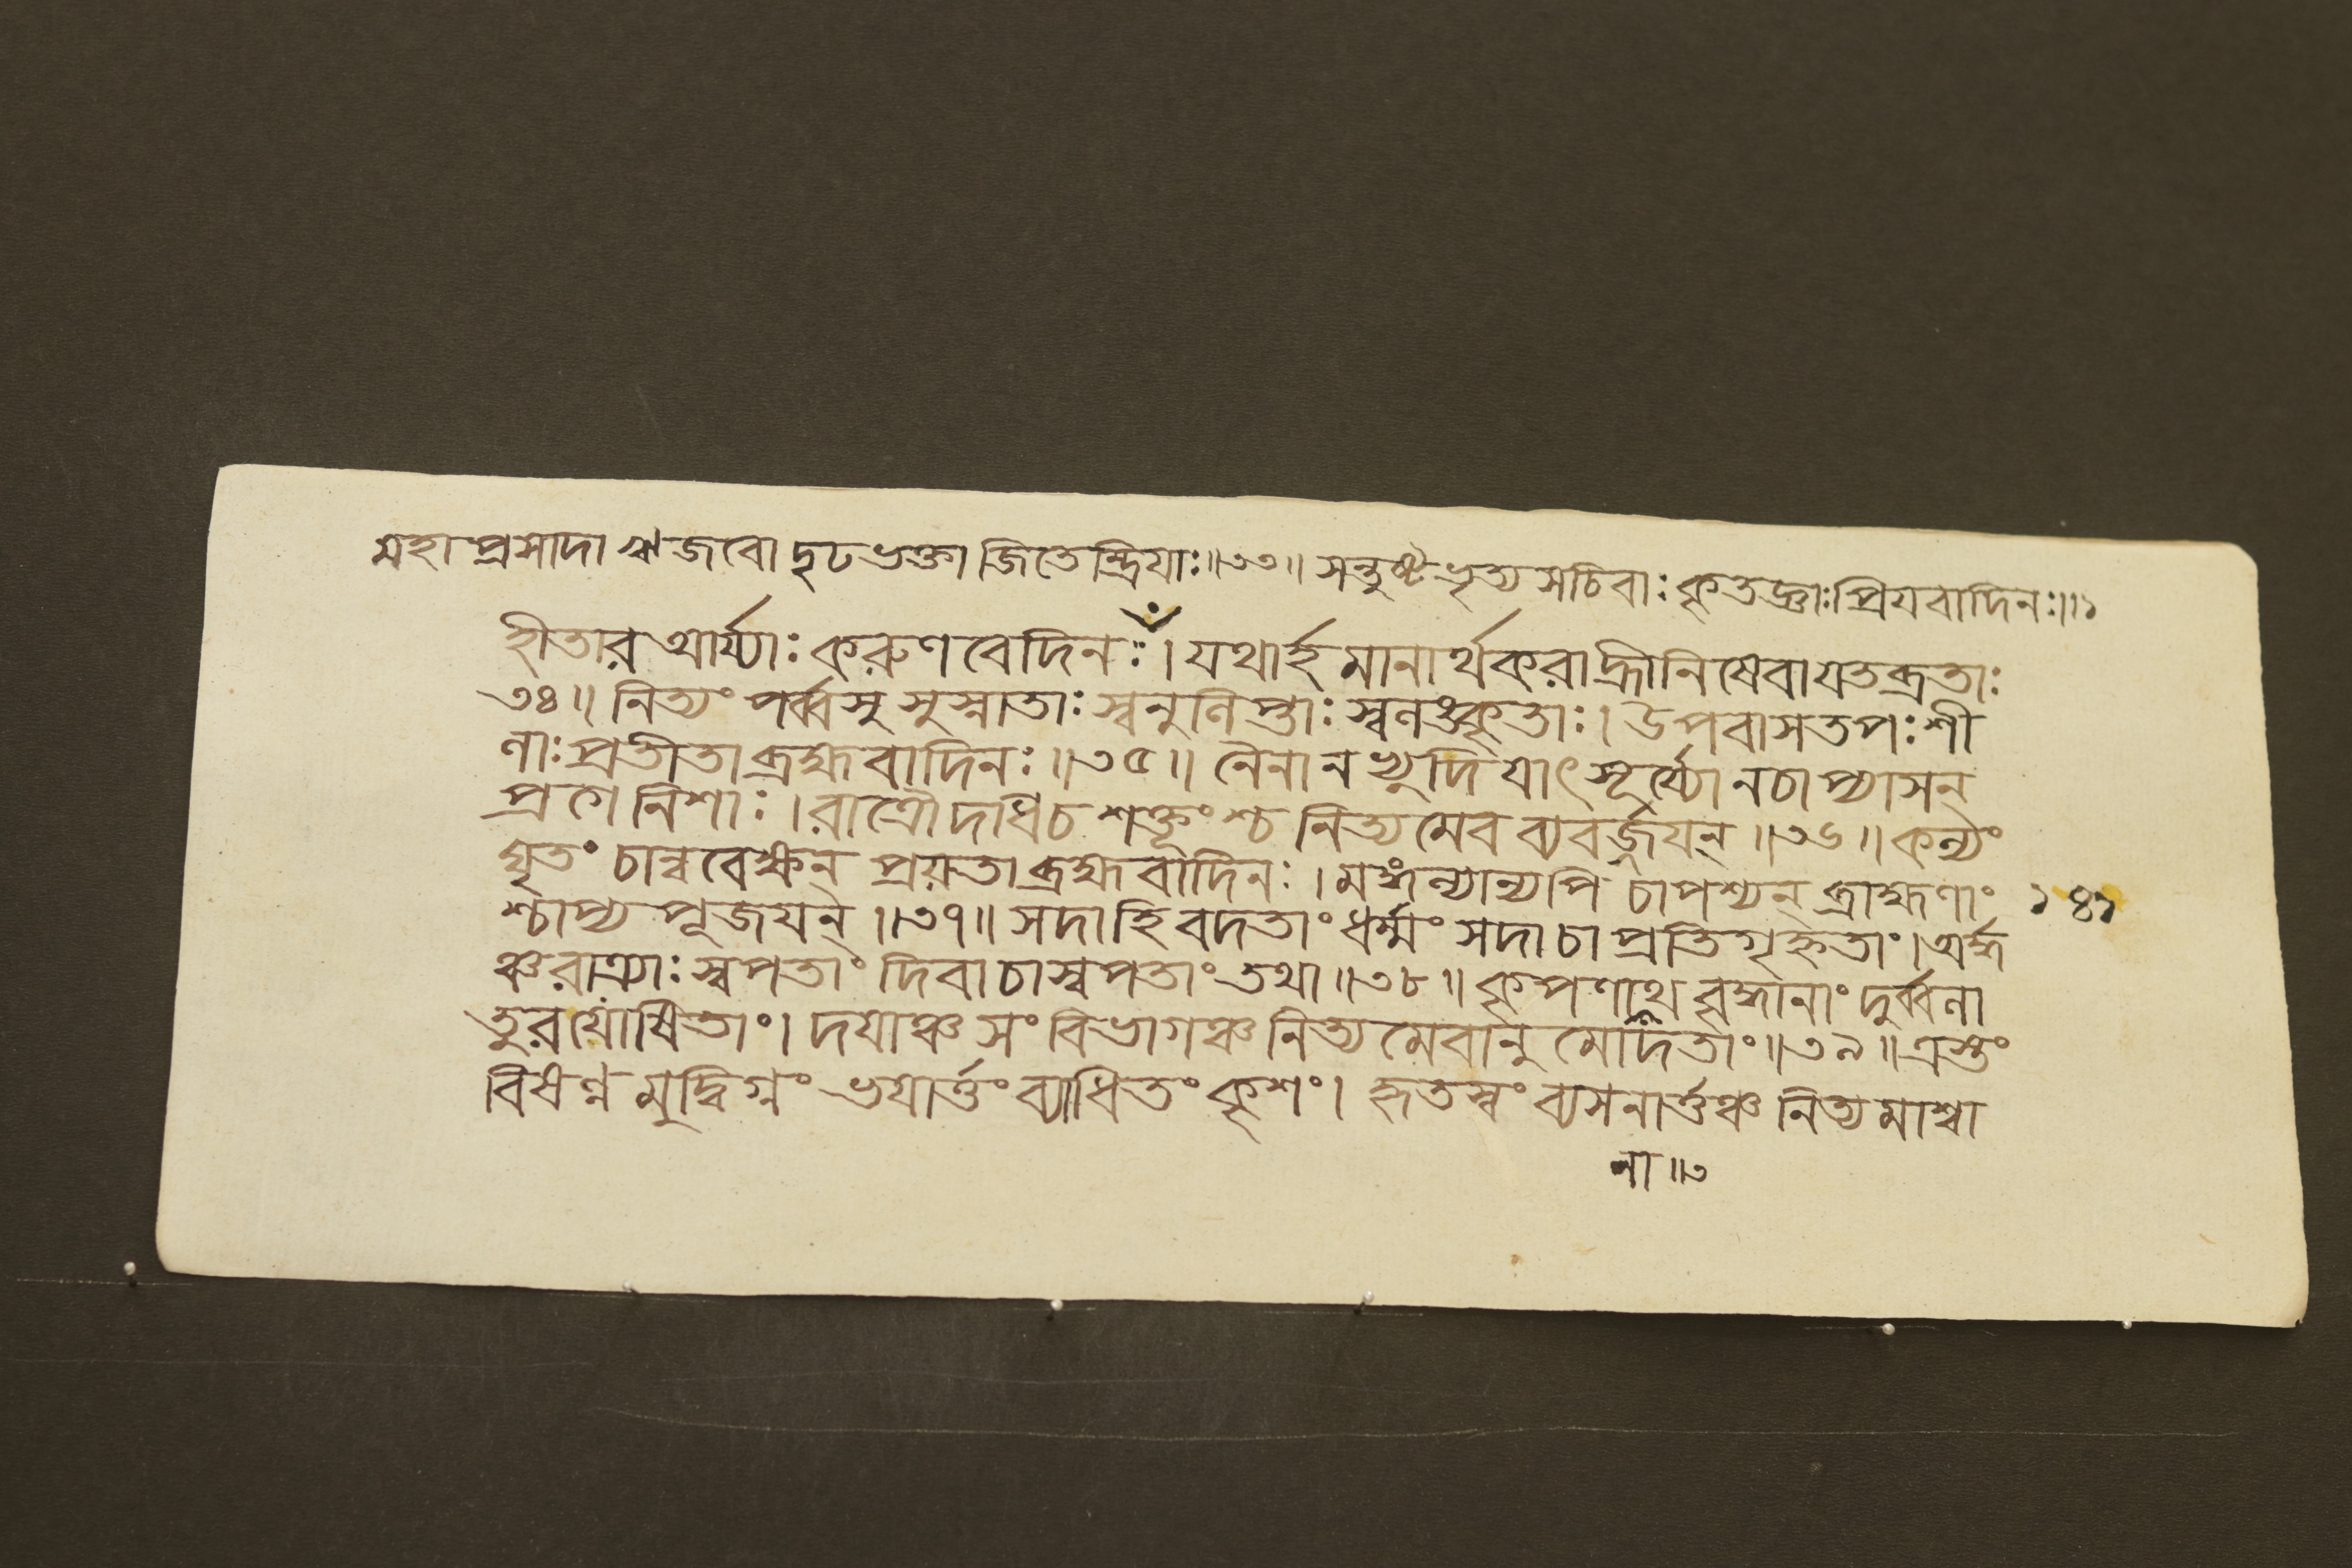 মহাপ্রসাদা ঋজবো দৃঢভক্তা জিতেন্দ্রিযাঃ॥৩৩॥ সন্তুষ্টভৃত্যসচিবাঃ কৃতজ্ঞাঃ প্রিযবাদিনঃ॥১
হীতার আর্য্যাঃ করুণবেদিনঃ। যথার্হমানার্থকরা হ্রীনিষেবা যতব্রতাঃ
৩৪॥ নিত্যং পর্ব্বসু সুস্নাতাঃ স্বনুলিপ্তাঃ স্বলঙ্কৃতাঃ। উপবাসতপঃশী
লাঃ প্রতীতা ব্রহ্মবাদিনঃ॥৩৫॥ নৈনানভ্যুদিযাৎ সূর্য্যো নচাপ্যাসন্
প্রগে নিশাঃ। রাত্রৌ দধি চ শক্তূংশ্চ নিত্যমেব ব্যবর্জ্জযন্॥৩৬॥ কল্যং
ঘৃতং চান্ববেক্ষন্ প্রয়তা ব্রহ্মবাদিনঃ। মঙ্গল্যান্যপি চাপশ্যন্ ব্রাহ্মণাং
শ্চাপ্য পূজযন্॥৩৭॥ সদাহি বদতাং ধর্ম্মং সদাচাপ্রতিগৃহ্নতাং। অর্দ্ধ
ঞ্চ রাত্র্যাঃ স্বপতাং দিবা চাস্বপতাং তথা॥৩৮॥ কৃপণাথ বৃদ্ধানাং দুর্ব্বলা
তুরযোষিতাং। দযাঞ্চ সংবিভাগঞ্চ নিত্যমেবানুমোদিতাং॥৩৯॥ ত্রস্তং
বিষণ্ন মুদ্বিগ্নং ভযার্ত্তং ব্যাধিতং কৃশং। হৃতস্বং ব্যসনার্ত্তঞ্চ নিত্যমাশ্বা
না॥৩
১৪১